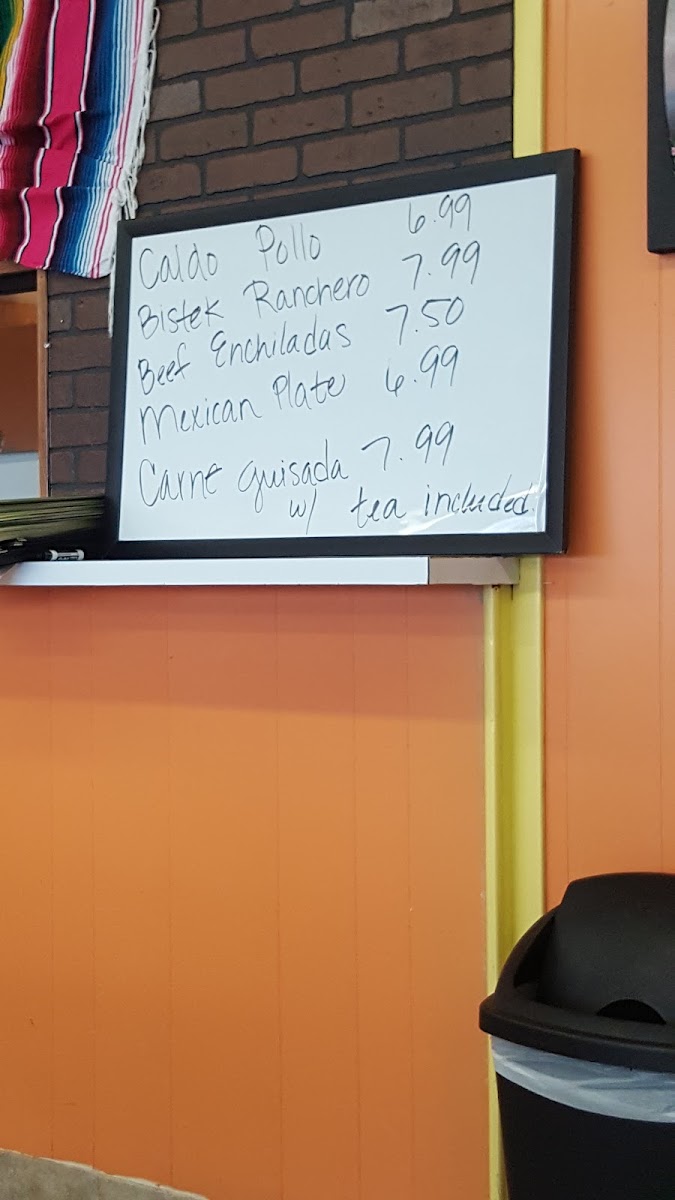 Caldo Pollo 6.99
Bistek Ranchero 7.99
Beef Enchiladas 7.50
Mexican Plate 6.99
Carne guisada 7.99
w/ tea included.